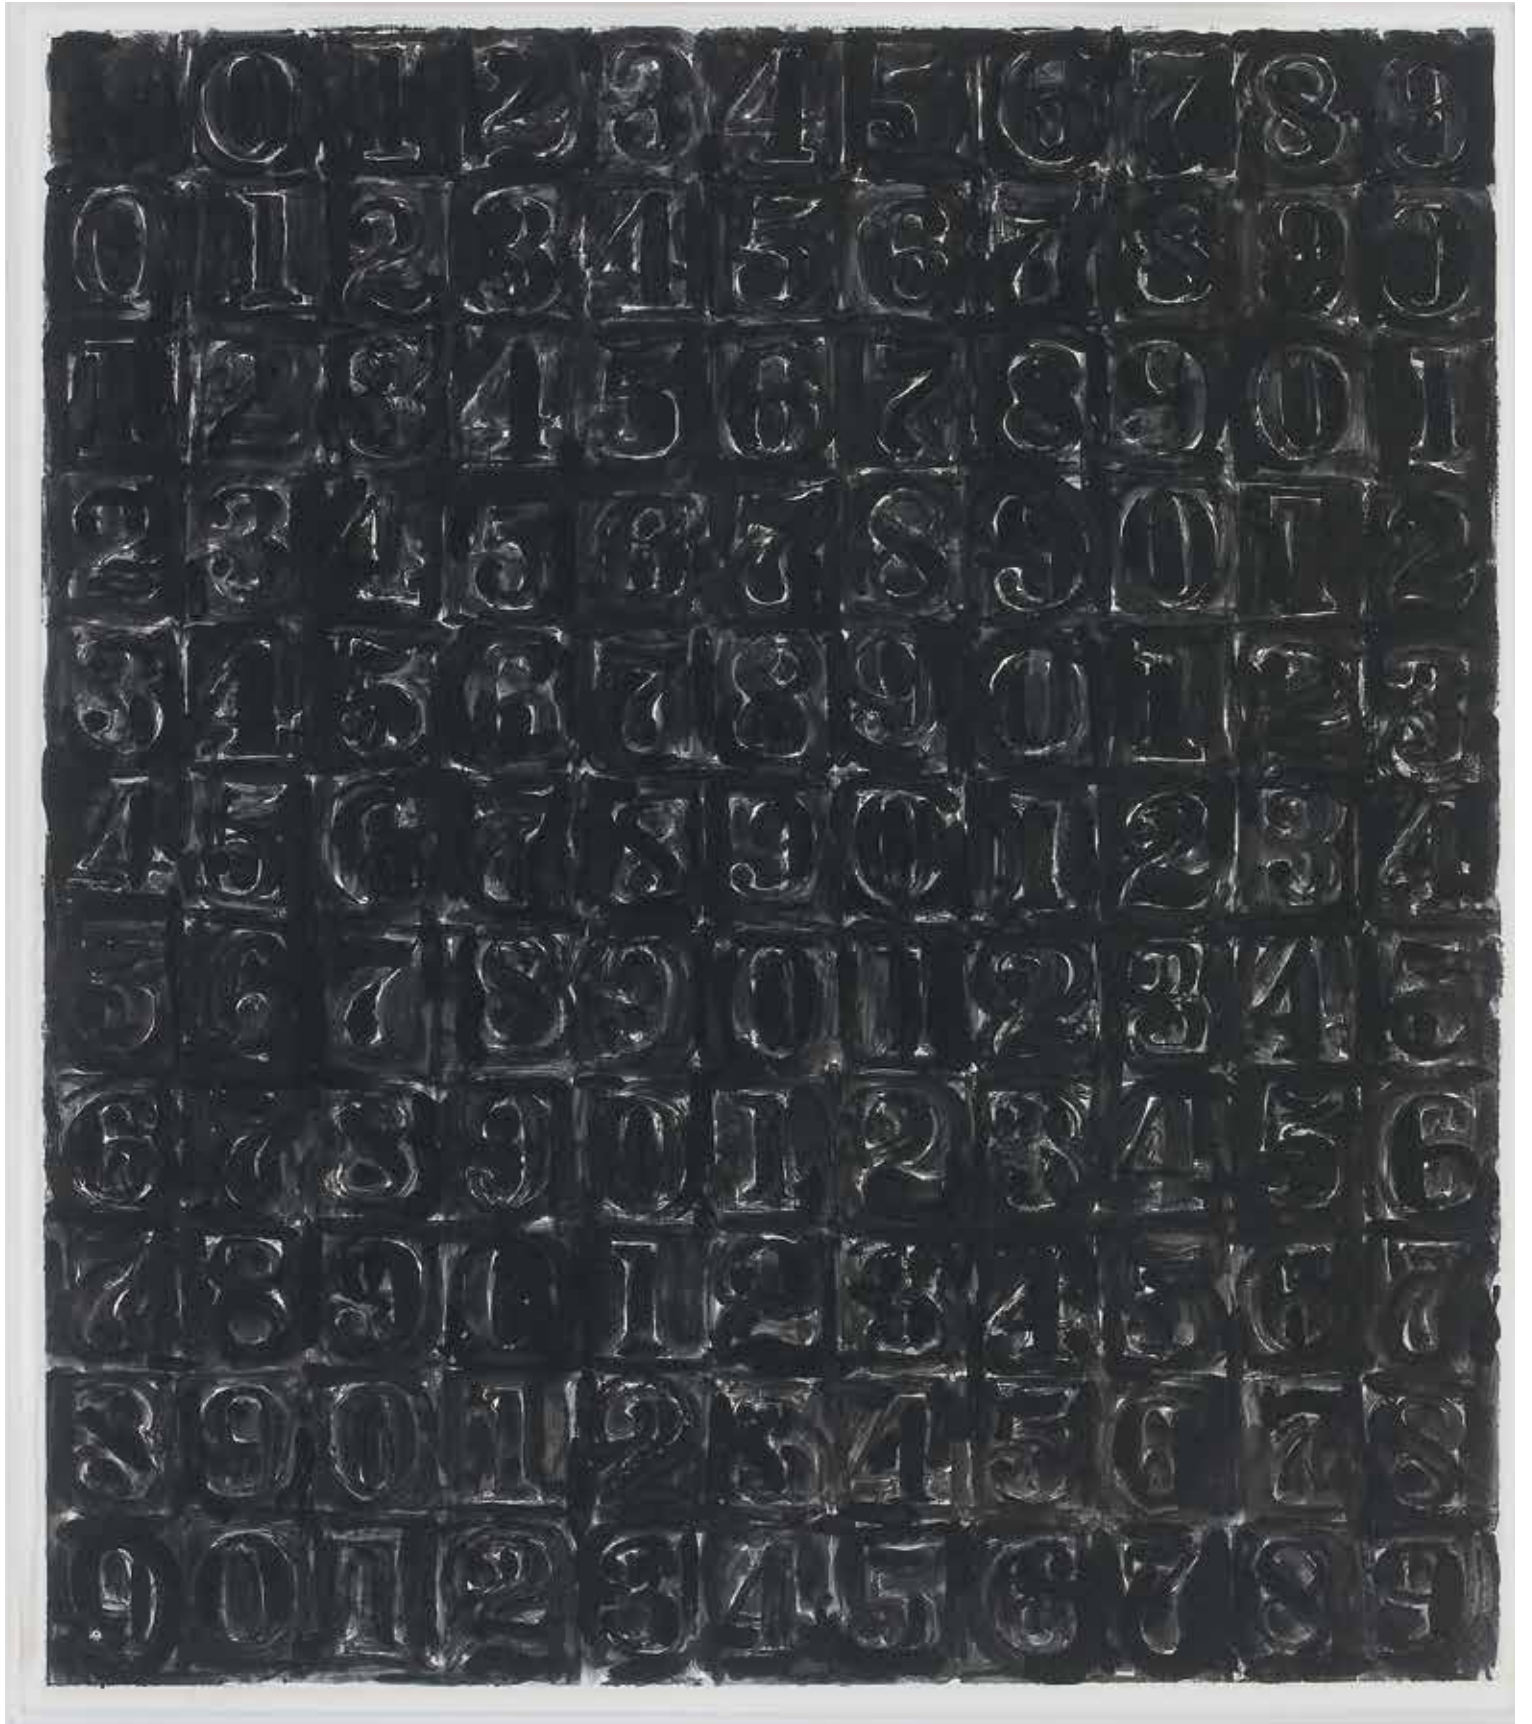 0 1 2 3 4 5 6 7 8 9
0 1 2 3 4 5 6 7 8 9 0
1 2 3 4 5 6 7 8 9 0 1
2 3 4 5 6 7 8 9 0 1 2
3 4 5 6 7 8 9 0 1 2 3
4 5 6 7 8 9 0 1 2 3 4
5 6 7 8 9 0 1 2 3 4 5
6 7 8 9 0 1 2 3 4 5 6
7 8 9 0 1 2 3 4 5 6 7
8 9 0 1 2 3 4 5 6 7 8
9 0 1 2 3 4 5 6 7 8 9